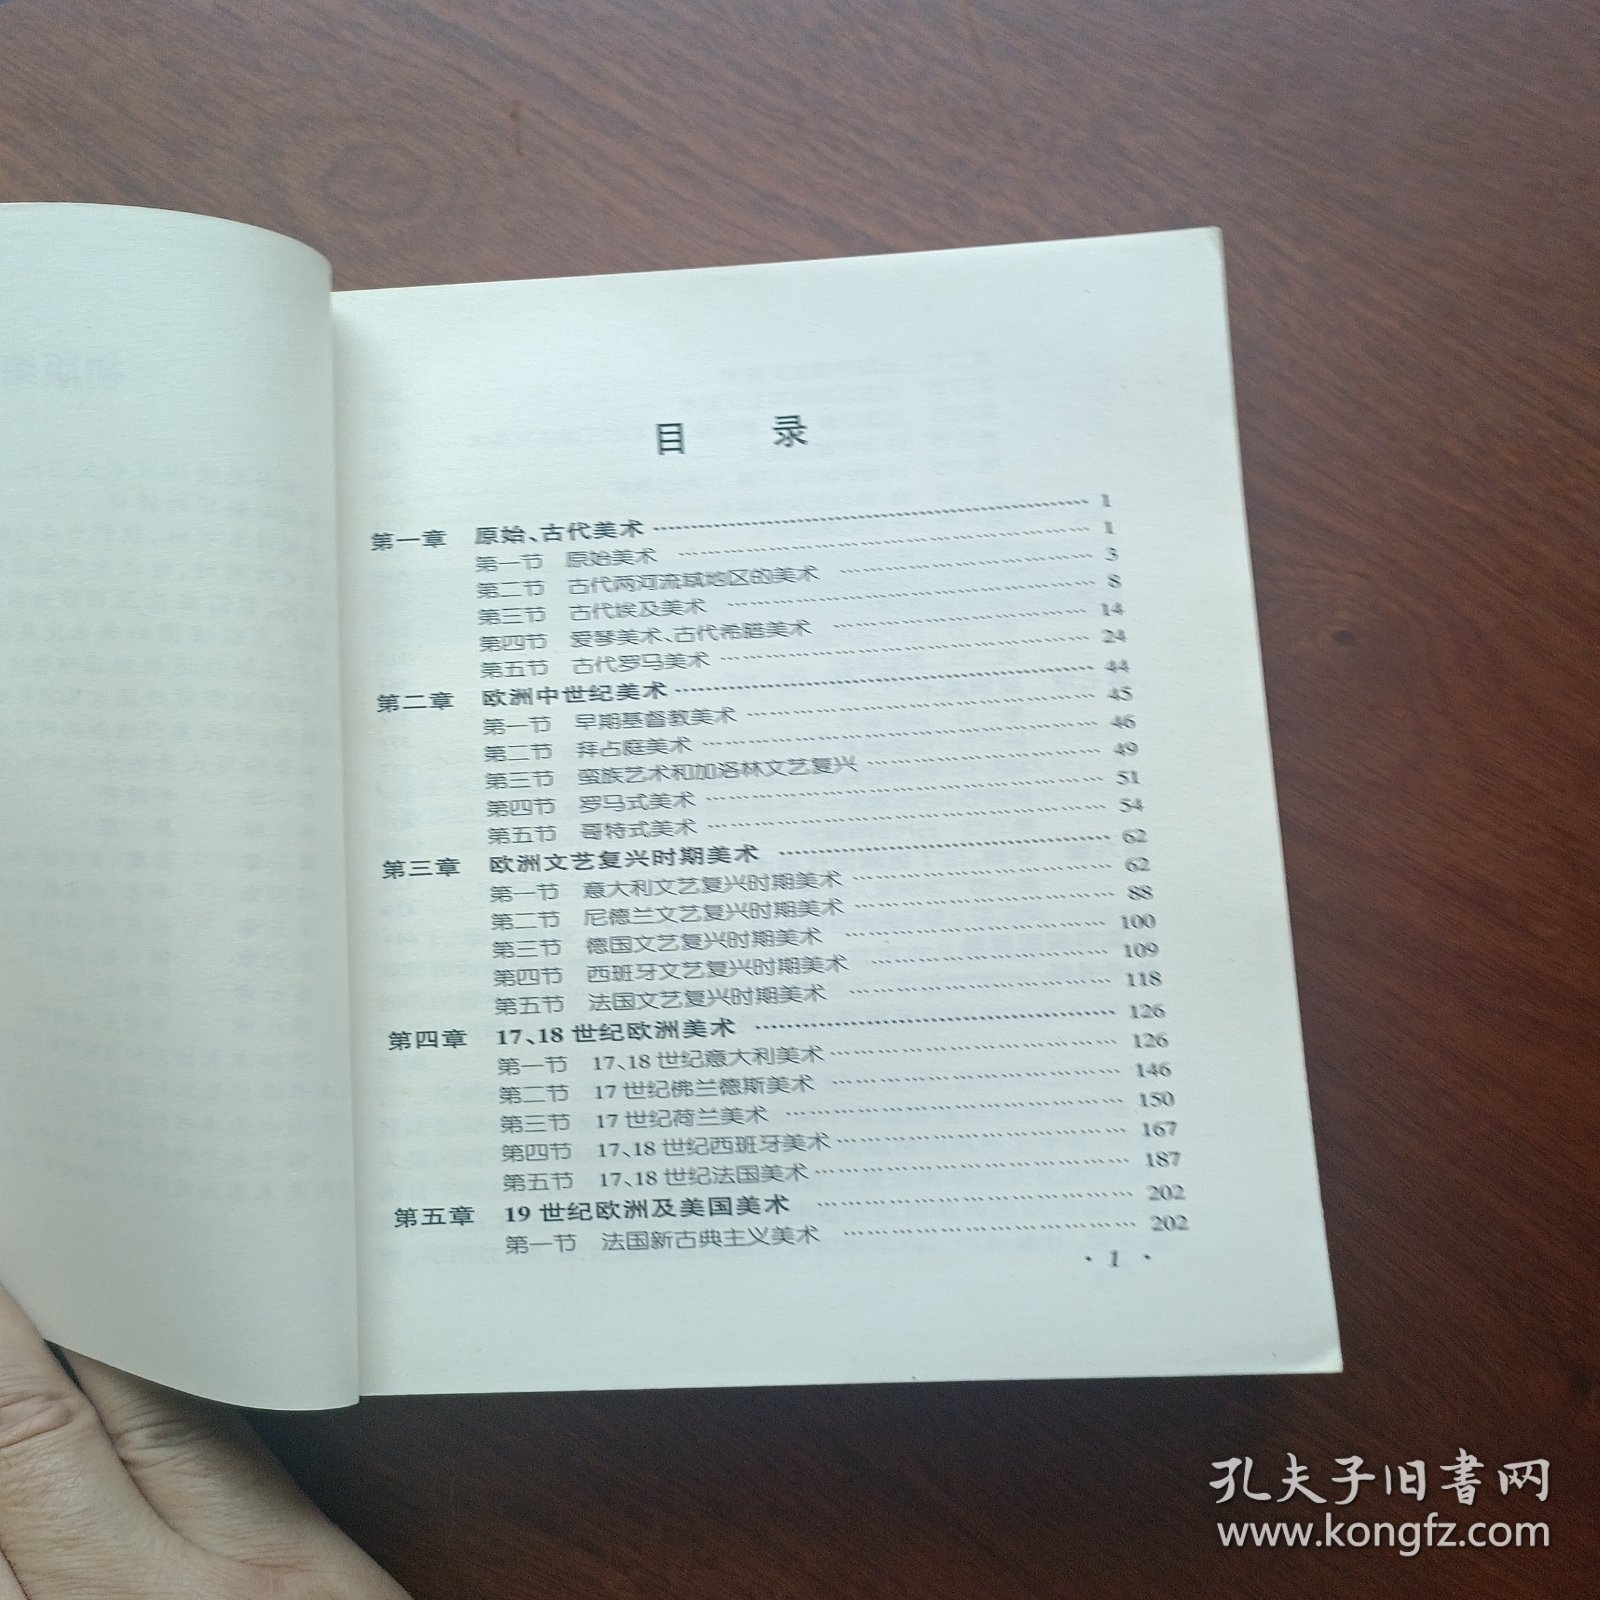 目 录
第一章 原始、古代美术 …… 1
第一节 原始美术 …… 1
第二节 古代两河流域地区的美术 …… 3
第三节 古代埃及美术 …… 8
第四节 爱琴美术、古代希腊美术 …… 14
第五节 古代罗马美术 …… 24
第二章 欧洲中世纪美术 …… 44
第一节 早期基督教美术 …… 45
第二节 拜占庭美术 …… 46
第三节 蛮族艺术和加洛林文艺复兴 …… 49
第四节 罗马式美术 …… 51
第五节 哥特式美术 …… 54
第三章 欧洲文艺复兴时期美术 …… 62
第一节 意大利文艺复兴时期美术 …… 62
第二节 尼德兰文艺复兴时期美术 …… 88
第三节 德国文艺复兴时期美术 …… 100
第四节 西班牙文艺复兴时期美术 …… 109
第五节 法国文艺复兴时期美术 …… 118
第四章 17、18世纪欧洲美术 …… 126
第一节 17、18世纪意大利美术 …… 126
第二节 17世纪佛兰德斯美术 …… 146
第三节 17世纪荷兰美术 …… 150
第四节 17、18世纪西班牙美术 …… 167
第五节 17、18世纪法国美术 …… 187
第五章 19世纪欧洲及美国美术 …… 202
第一节 法国新古典主义美术 …… 202
· 1 ·
孔夫子旧书网
www.kongfz.com